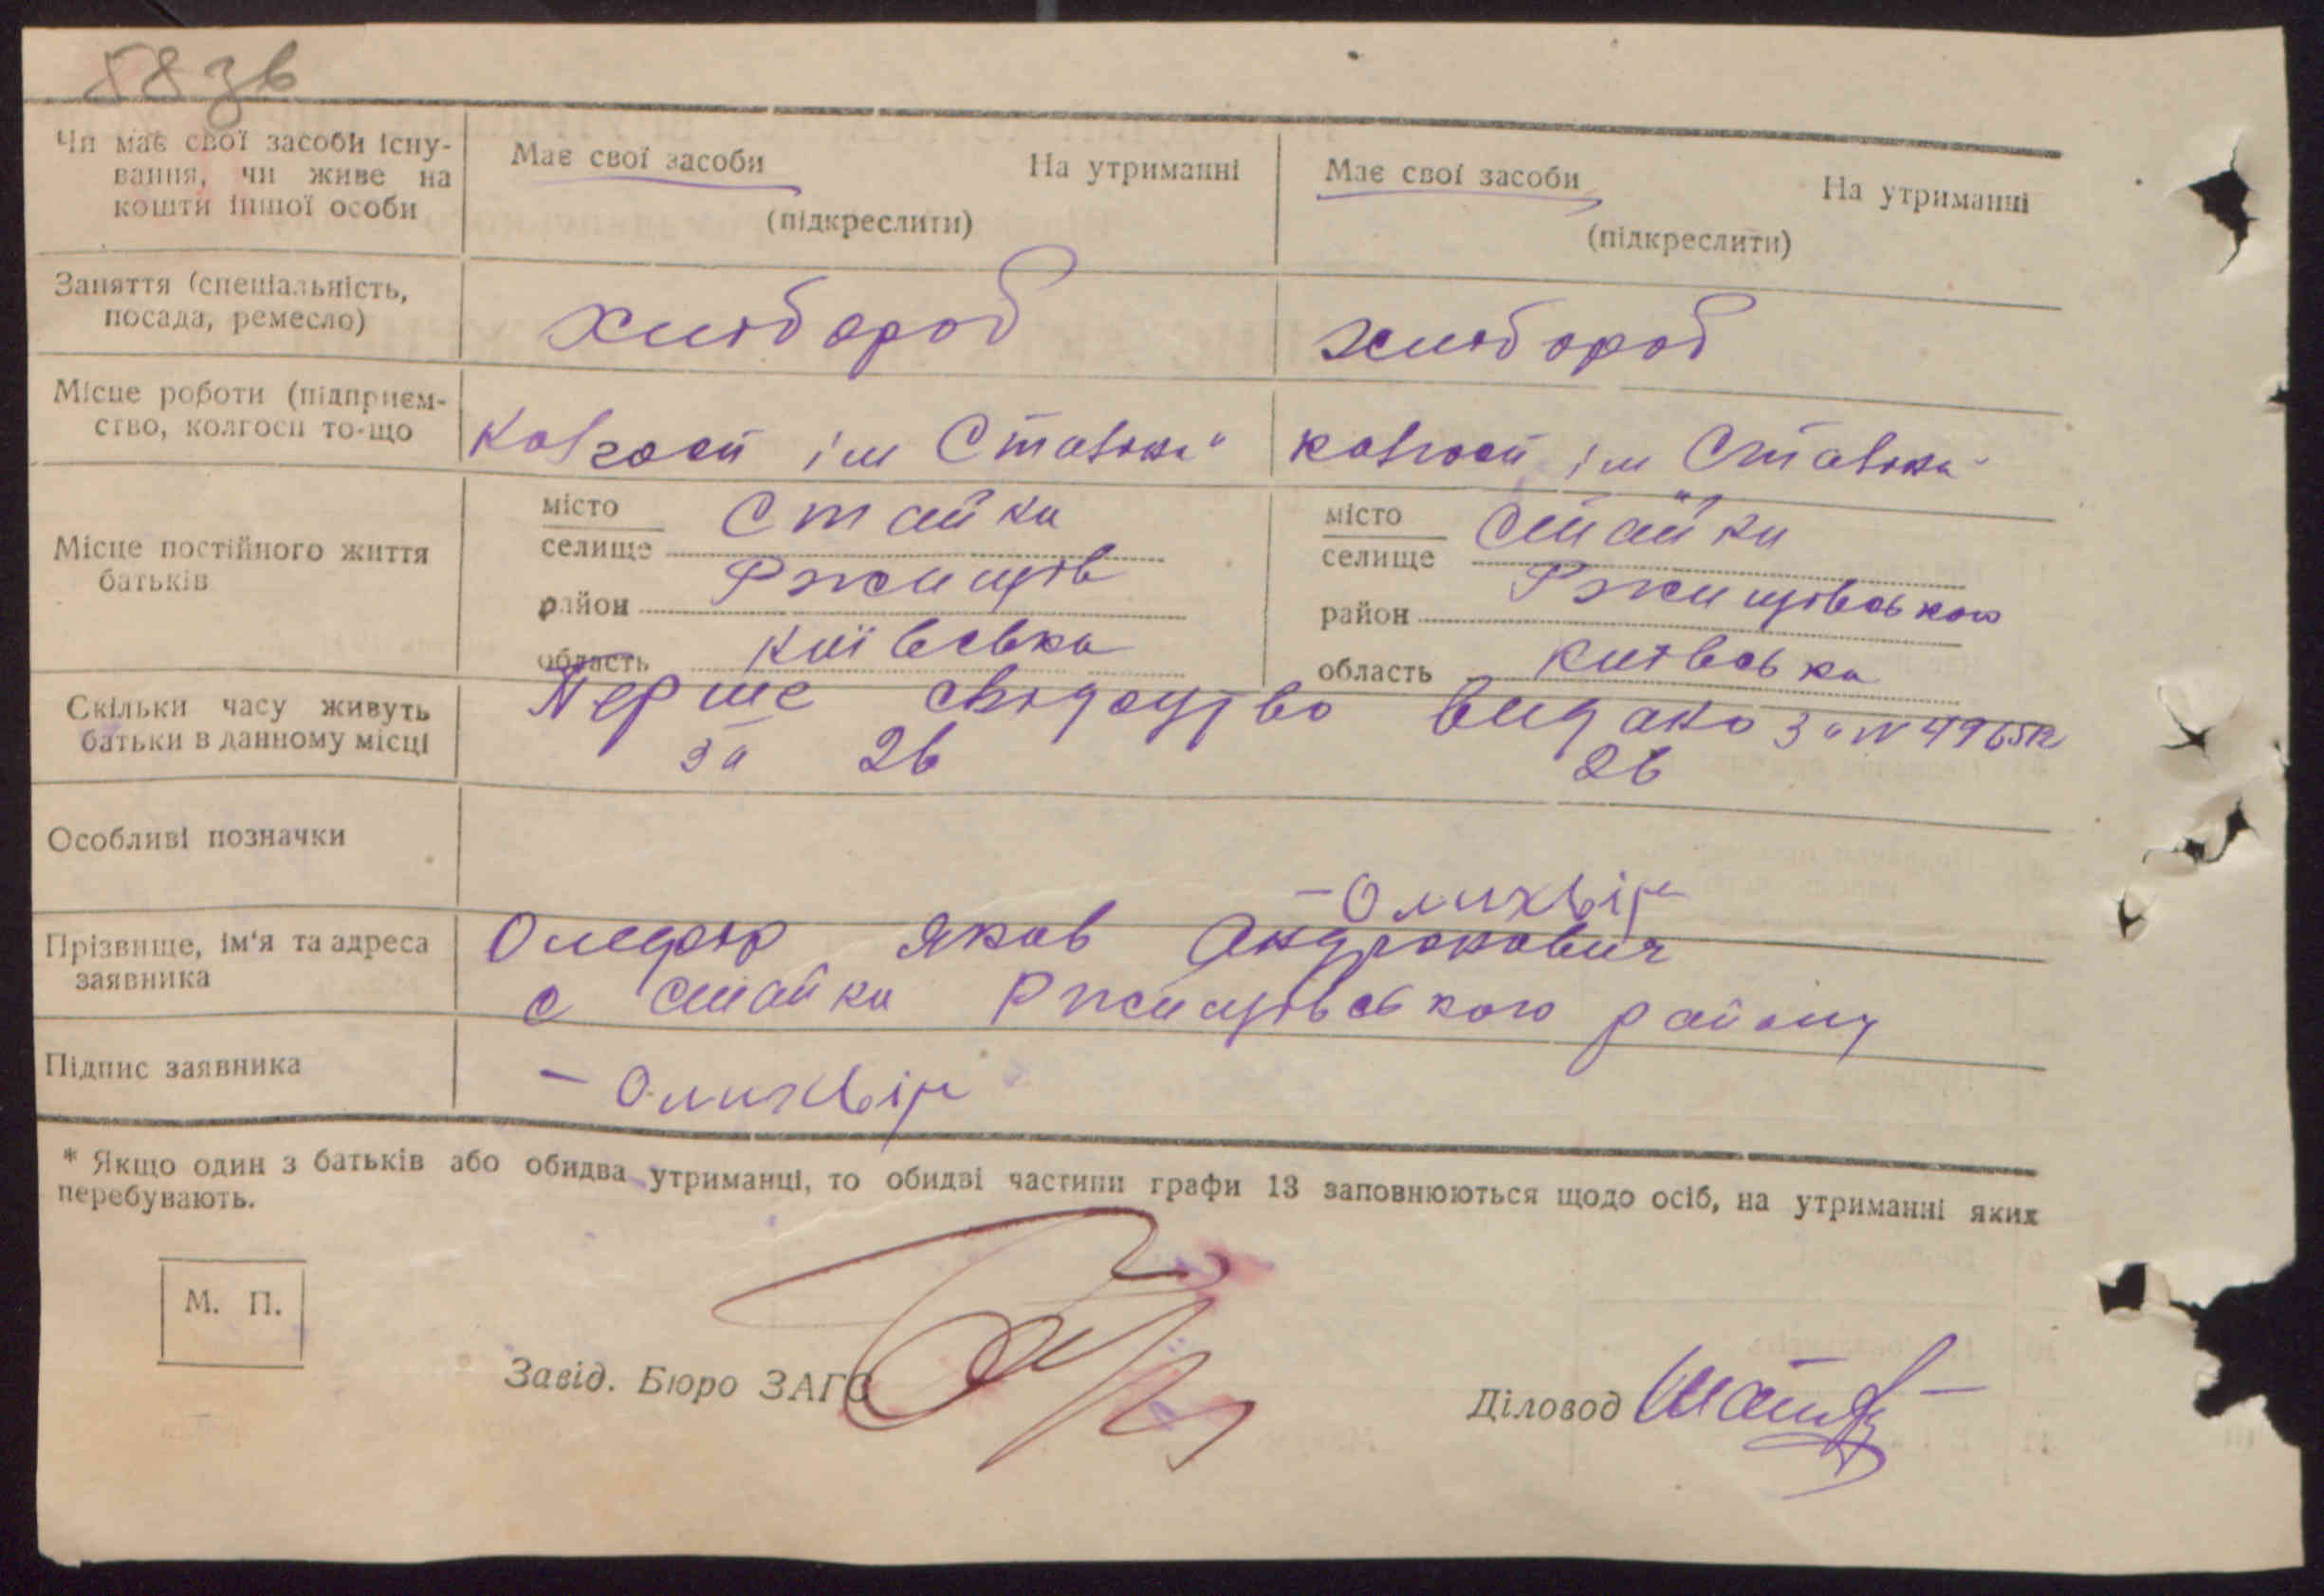 58 зв
Чи має свої засоби існу-
вання, чи живе на
кошти іншої особи
Має свої засоби На утриманні
(підкреслити)
Має свої засоби На утриманні
(підкреслити)
Заняття (спеціальність,
посада, ремесло)
Хлібороб
хлібороб
Місце роботи (підприєм-
ство, колгосп то-що
Колгосп ім Сталіна"
колгосп ім Сталіна"
Місце постійного життя
батьків
місто
селище
Стайки
район Ржищів
область Київська
місто
селище
Стайки
район Ржищівського
область Київська
Скільки часу живуть
батьки в данному місці
Перше свідоцтво видано за №
за 26
26
Особливі позначки
Прізвище, ім'я та адреса
заявника
Яков
с Стайки Ржищівського району
Підпис заявника
* Якщо один з батьків або обидва утриманці, то обидві частини графи 13 заповнюються щодо осіб, на утриманні яких
перебувають.
М. П.
Завід. Бюро ЗАГС
Діловод